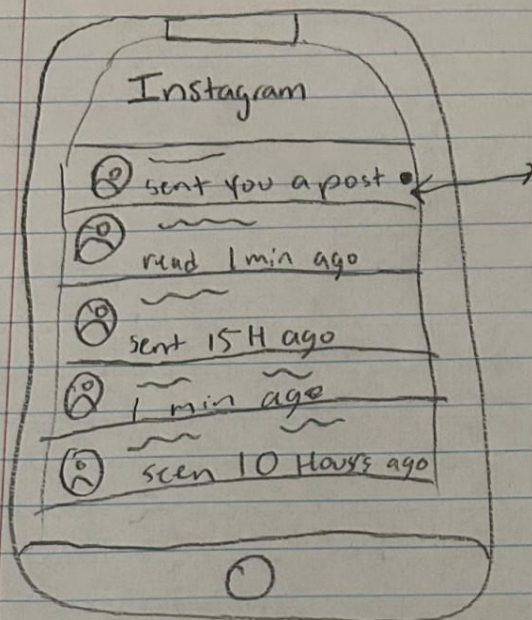 Instagram
sent you a post
read 1 min ago
sent 15 H ago
1 min ago
seen 10 Hours ago